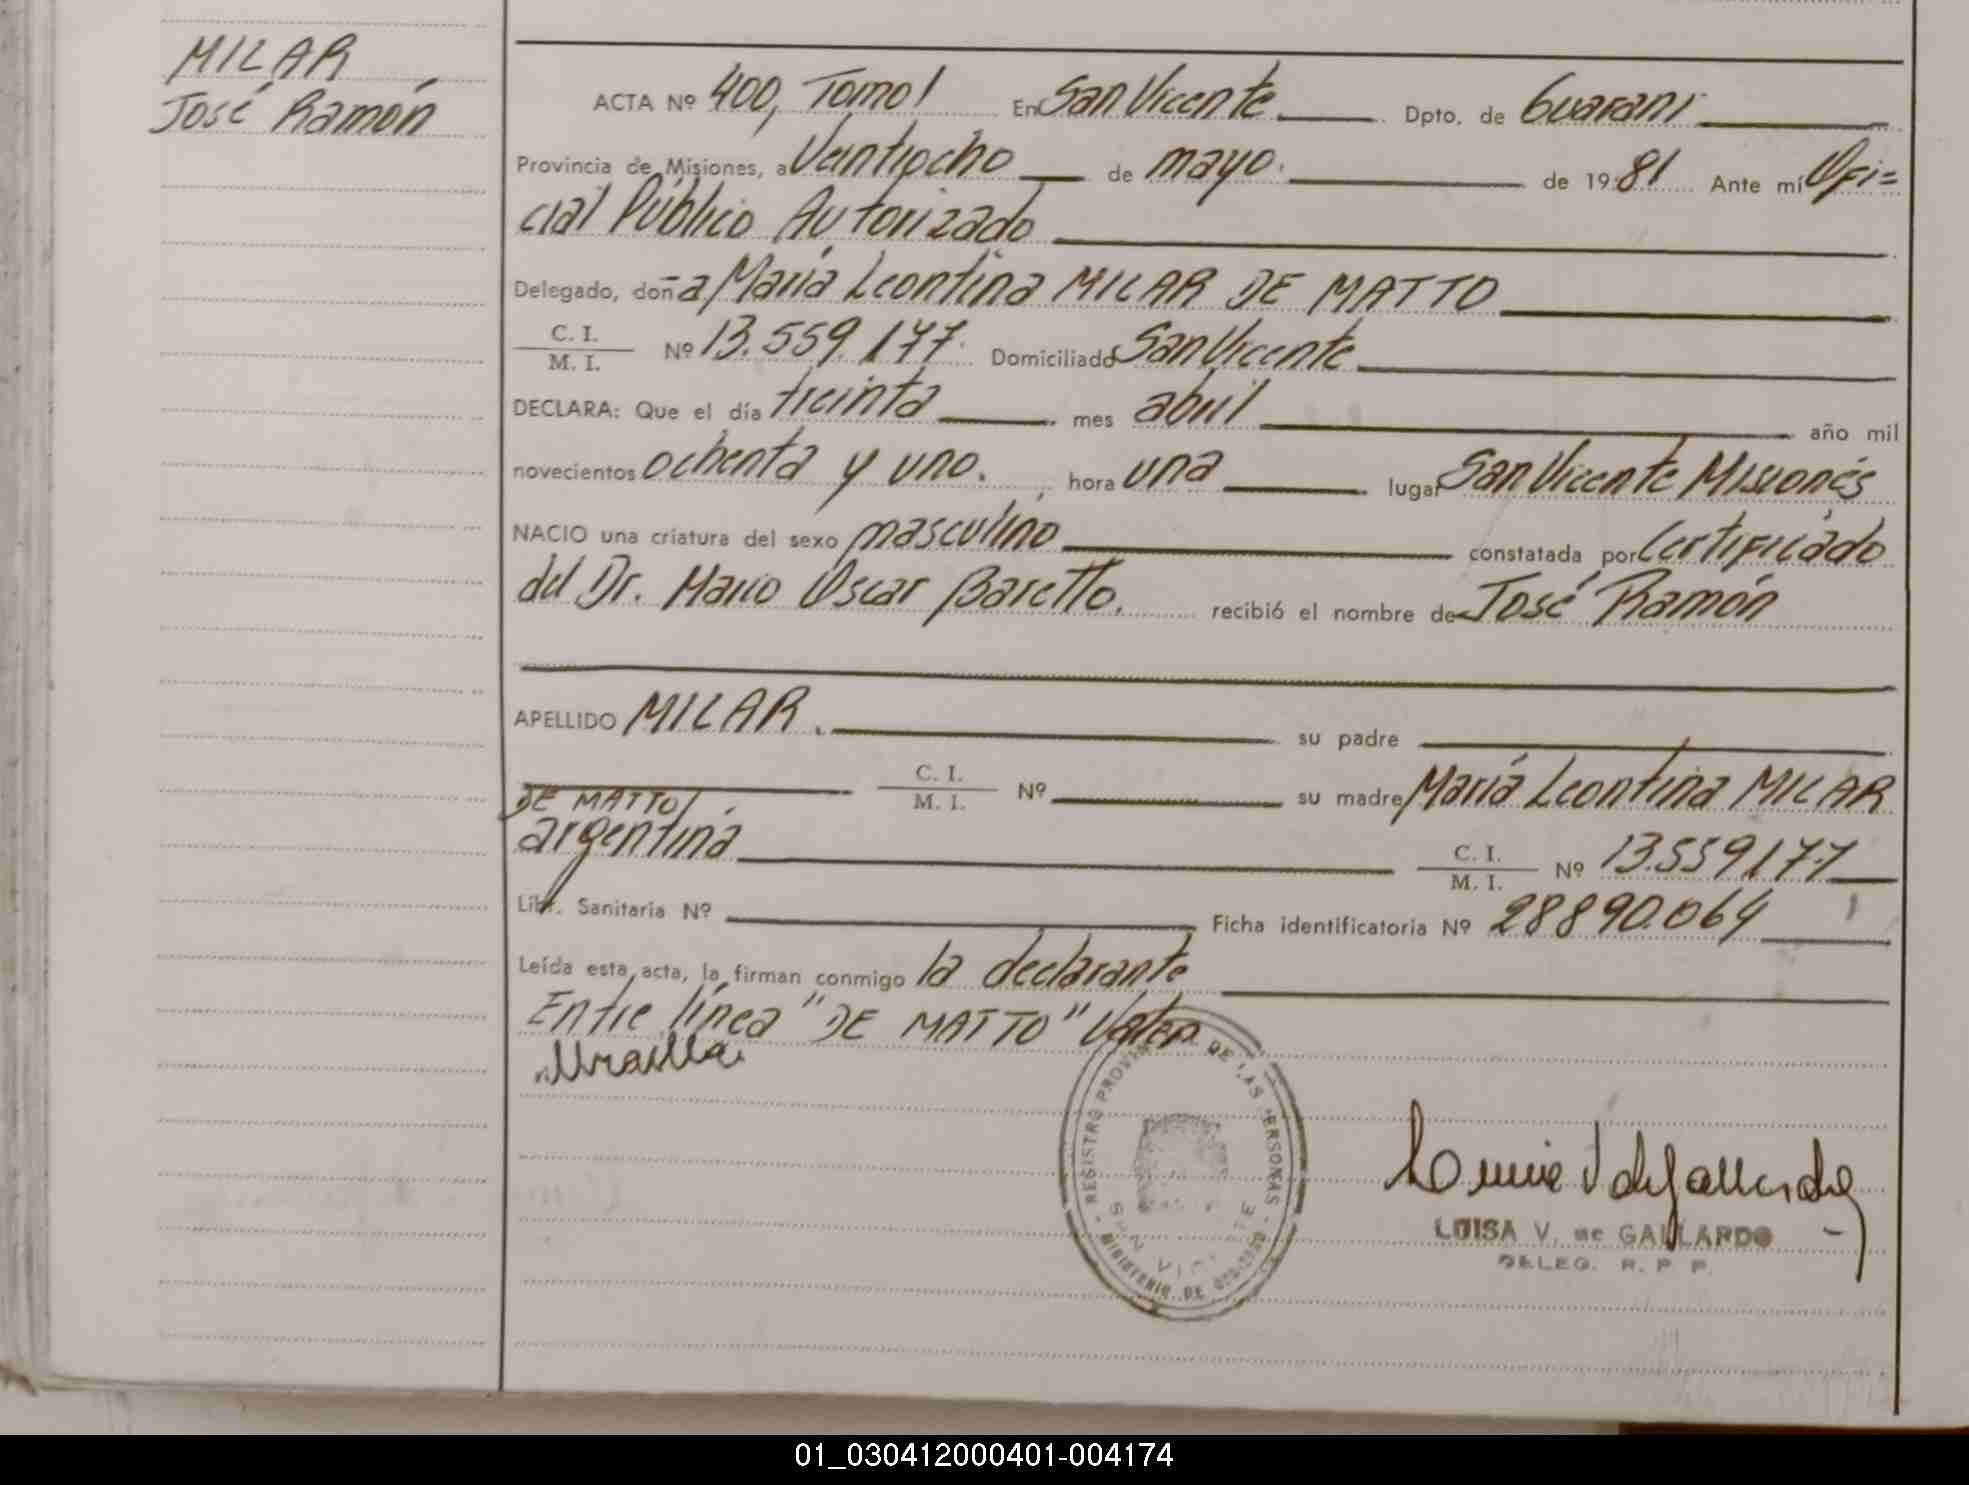 MILAR
José Ramón
ACTA Nº 400, Tomo I En San Vicente Dpto. de Guaraní
Provincia de Misiones, a Veintiocho de mayo. de 1981 Ante mí Ofi=
cial Público Autorizado
Delegado, doña María Leontina MILAR DE MATTO
C. I.
M. I. Nº 13.559.177. Domiciliado San Vicente
DECLARA: Que el día treinta mes abril año mil
novecientos ochenta y uno. , hora una lugar San Vicente Misiones
NACIO una criatura del sexo masculino constatada por Certificado
del Dr. Mario Oscar Baretto. recibió el nombre de José Ramón
APELLIDO MILAR. su padre
C. I.
M. I. Nº su madre María Leontina MILAR
DE MATTO/
argentina C. I.
M. I. Nº 13.559177
Libr. Sanitaria Nº Ficha identificatoria Nº 28890.064
Leída esta acta, la firman conmigo la declarante
Entre línea "DE MATTO" Valen
REGISTRO PROVINCIAL DE LAS PERSONAS
SAN VICENTE
MINISTERIO DE GOBIERNO
LUISA V. de GALLARDO
DELEG. R. P. P.
01_030412000401-004174